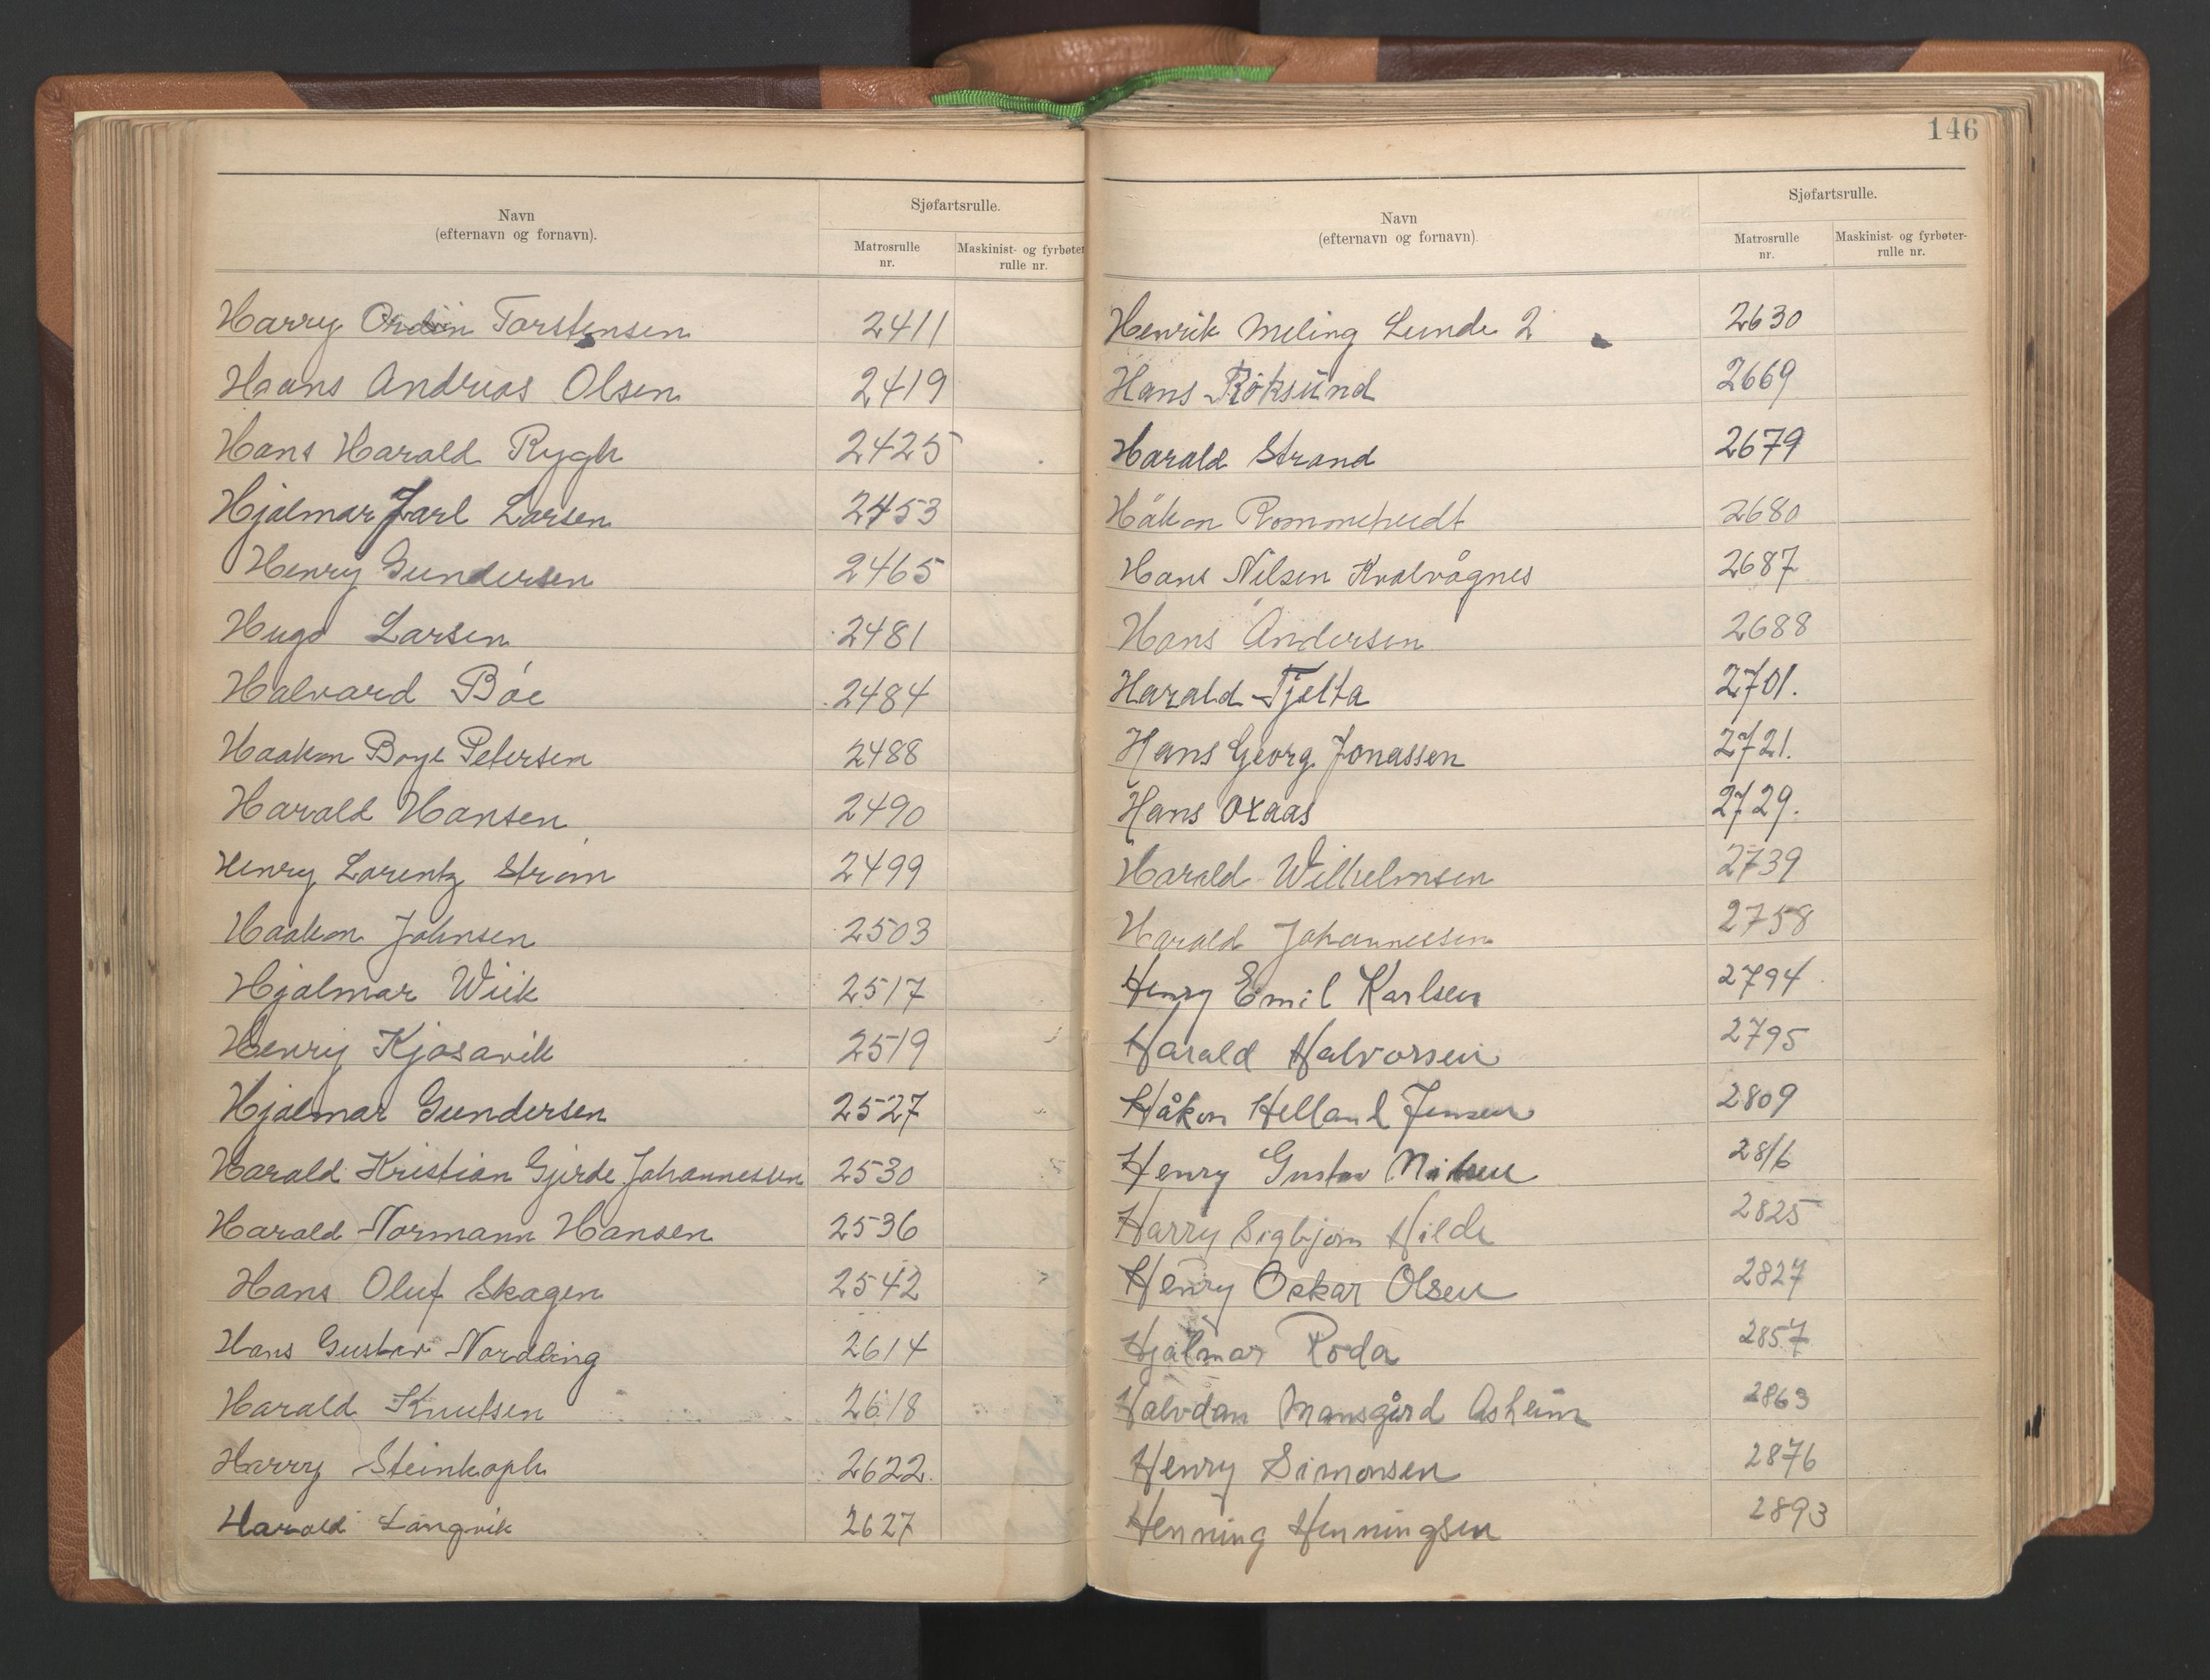 Navn
(efternavn og fornavn).
Sjøfartsrulle.
Matrosrulle nr.
Maskinist- og fyrbøter rulle nr.
Harry Torstensen 2411
Hans Andreas Olsen 2419
Hans Harald Rygh 2425
Hjalmar Jarl Larsen 2453
Henry Gundersen 2465
Hugo Larsen 2481
Halvard Bóe 2484
Haakon Boye Petersen 2488
Harald Hansen 2490
Henry Lorentz Strøm 2499
Haakon Johnsen 2503
Hjalmar Wiik 2517
Henry Kjosavik 2519
Hjalmar Gundersen 2527
Harald Kristian Gjerde Johannessen 2530
Harald Normann Hansen 2536
Hans Oluf Skagen 2542
Hans Gustav Nordling 2614
Harald Knutsen 2618
Harry Steinkoph 2622.
Harald Langvik 2627
146
Navn
(efternavn og fornavn).
Sjøfartsrulle.
Matrosrulle nr.
Maskinist- og fyrbøter- rulle nr.
Henrik Meling Lunde 2 2630
Hans Röksund 2669
Harald Strand 2679
Håkon 2680
Hans Nilsen Kvalvågnes 2687
Hans Andersen 2688
Harald Tjelta 2701.
Hans Georg Jonassen 2721.
Hans Oxaas 2729.
Harald Wilhelmsen 2739
Harald Johannessen 2758
Henry Emil Karlsen 2794
Harald Halvorsen 2795
Håkon Helland Jensen 2809
Henry Gustav 2816
Harry Sigbjørn Hilde 2825
Henry Oskar Olsen 2827
Hjalmar Roda 2857
Halvdan Mansgård Asheim 2863
Henry Simonsen 2876
Henning Henningsen 2893